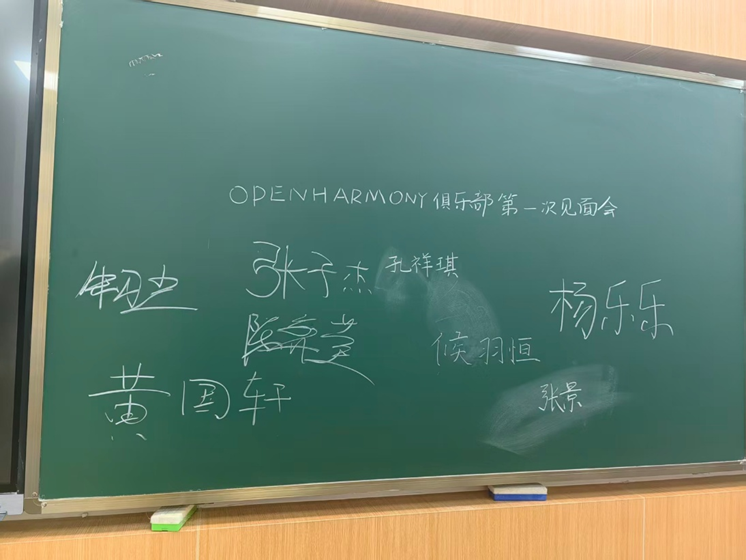 OPENHARMONY俱乐部第一次见面会
张子杰
孔祥琪
杨乐乐
侯羽恒
黄国轩
张景